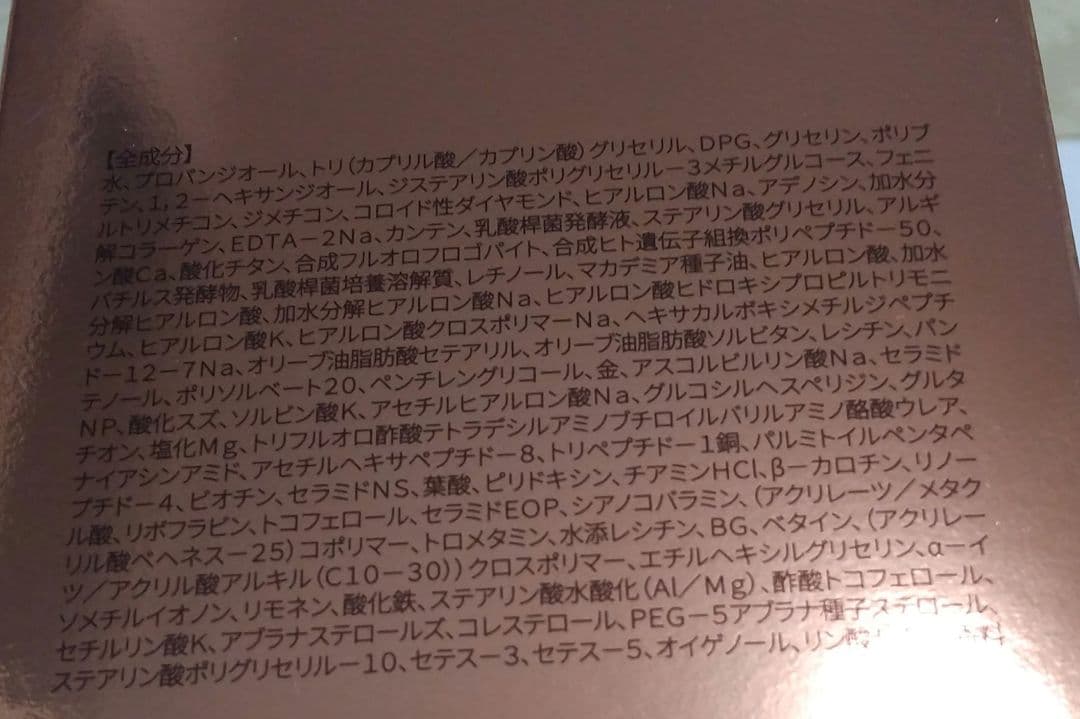 【全成分】
水、プロパンジオール、トリ(カプリル酸／カプリン酸)グリセリル、DPG、グリセリン、ポリブ
テン、1,2－ヘキサンジオール、ジステアリン酸ポリグリセリル－3メチルグルコース、フェニ
ルトリメチコン、ジメチコン、コロイド性ダイヤモンド、ヒアルロン酸Na、アデノシン、加水分
解コラーゲン、EDTA－2Na、カンテン、乳酸桿菌発酵液、ステアリン酸グリセリル、アルギ
ン酸Ca、酸化チタン、合成フルオロフロゴパイト、合成ヒト遺伝子組換ポリペプチド－50、
バチルス発酵物、乳酸桿菌培養溶解質、レチノール、マカデミア種子油、ヒアルロン酸、加水
分解ヒアルロン酸、加水分解ヒアルロン酸Na、ヒアルロン酸ヒドロキシプロピルトリモニ
ウム、ヒアルロン酸K、ヒアルロン酸クロスポリマーNa、ヘキサカルボキシメチルジペプチ
ド－12－7Na、オリーブ油脂肪酸セテアリル、オリーブ油脂肪酸ソルビタン、レシチン、パン
テノール、ポリソルベート20、ペンチレングリコール、金、アスコルビルリン酸Na、セラミド
NP、酸化スズ、ソルビン酸K、アセチルヒアルロン酸Na、グルコシルヘスペリジン、グルタ
チオン、塩化Mg、トリフルオロ酢酸テトラデシルアミノブチロイルバリルアミノ酪酸ウレア、
ナイアシンアミド、アセチルヘキサペプチド－8、トリペプチド－1銅、パルミトイルペンタペ
プチド－4、ビオチン、セラミドNS、葉酸、ピリドキシン、チアミンHCl、β－カロチン、リノー
ル酸、リボフラビン、トコフェロール、セラミドEOP、シアノコバラミン、(アクリレーツ／メタク
リル酸ベヘネス－25)コポリマー、トロメタミン、水添レシチン、BG、ベタイン、(アクリレー
ツ／アクリル酸アルキル(C10－30))クロスポリマー、エチルヘキシルグリセリン、α－イ
ソメチルイオノン、リモネン、酸化鉄、ステアリン酸水酸化(Al／Mg)、酢酸トコフェロール、
セチルリン酸K、アブラナステロールズ、コレステロール、PEG－5アブラナ種子ステロール、
ステアリン酸ポリグリセリル－10、セテス－3、セテス－5、オイゲノール、リン酸